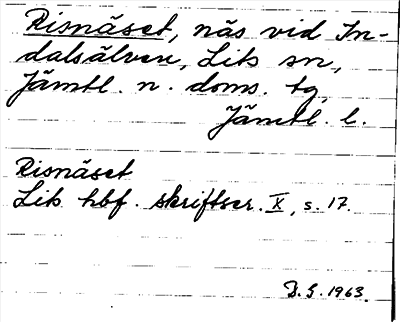 Risnäset, näs vid In-
dalsälven, Lits sn,
Jämtl. n. doms. tg,
Jämtl. l.
Risnäset
Lits hbf. skriftser. X, s. 17.
D. S. 1963.